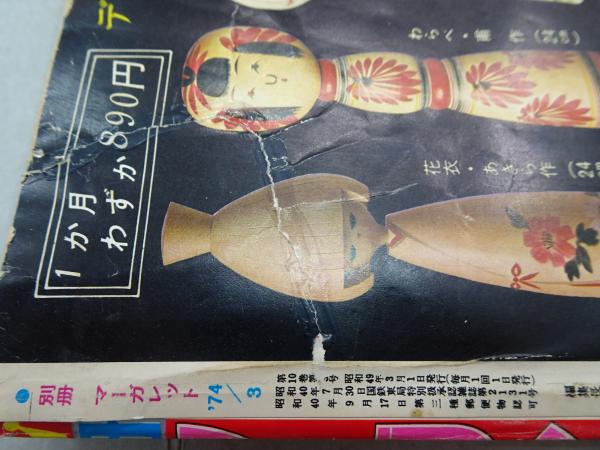 デ
1か月
わずか890円
わらべ・
作
花衣・あきら作(24
別冊 マーガレット '74/3
第10巻第 号 昭和49年3月1日発行(毎月1回1日発行)
昭和40年7月30日国鉄東局特別扱承認雑誌第2131号
昭和40年9月17日第三種郵便物認可
編集